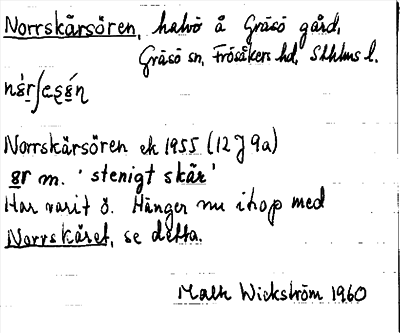 Norrskärsören, halvö å Gräsö gård,
Gräsö sn, Frösåkers hd, Sthlms l.
Norrskärsören ek 1955 (12 J 9a)
ør m. 'stenigt skär'
Har varit ö. Hänger nu ihop med
Norrskäret, se detta.
Wickström 1960